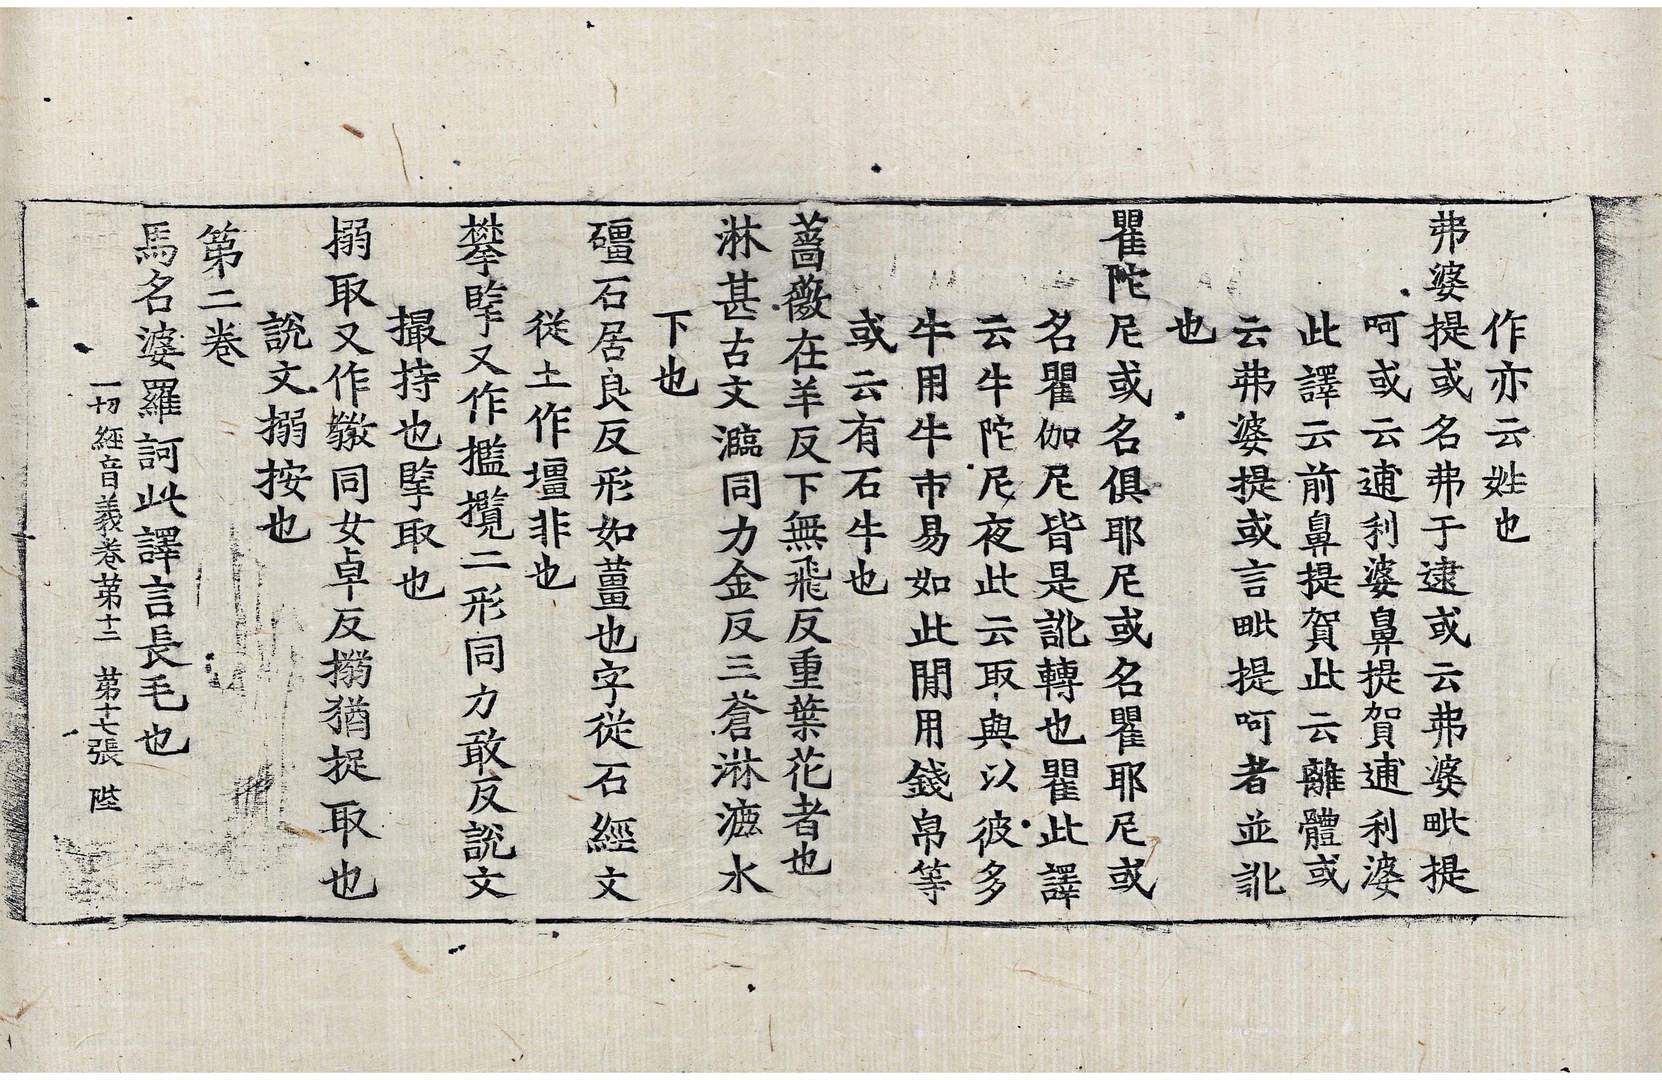 作亦云姓也
弗婆提或名弗于逮或云弗婆毗提
呵或云逋利婆鼻提賀逋利婆
此譯云前鼻提賀此云離體或
云弗婆提或言毗提呵者並訛
也
瞿陀尼或名俱耶尼或名瞿耶尼或
名瞿伽尼皆是訛轉也瞿此譯
云牛陀尼夜此云取與以彼多
牛用牛市易如此閒用錢帛等
或云有石牛也
薔薇在羊反下無飛反重葉花者也
淋甚古文灆同力金反三蒼淋漉水
下也
礓石居良反形如薑也字從石經文
從土作壃非也
攀擥又作㩜攬二形同力敢反說文
撮持也擥取也
搦取又作䵫同女卓反搦猶捉取也
說文搦按也
第二卷
馬名婆羅訶此譯言長毛也
一切經音義卷第十二 第十七張 陛